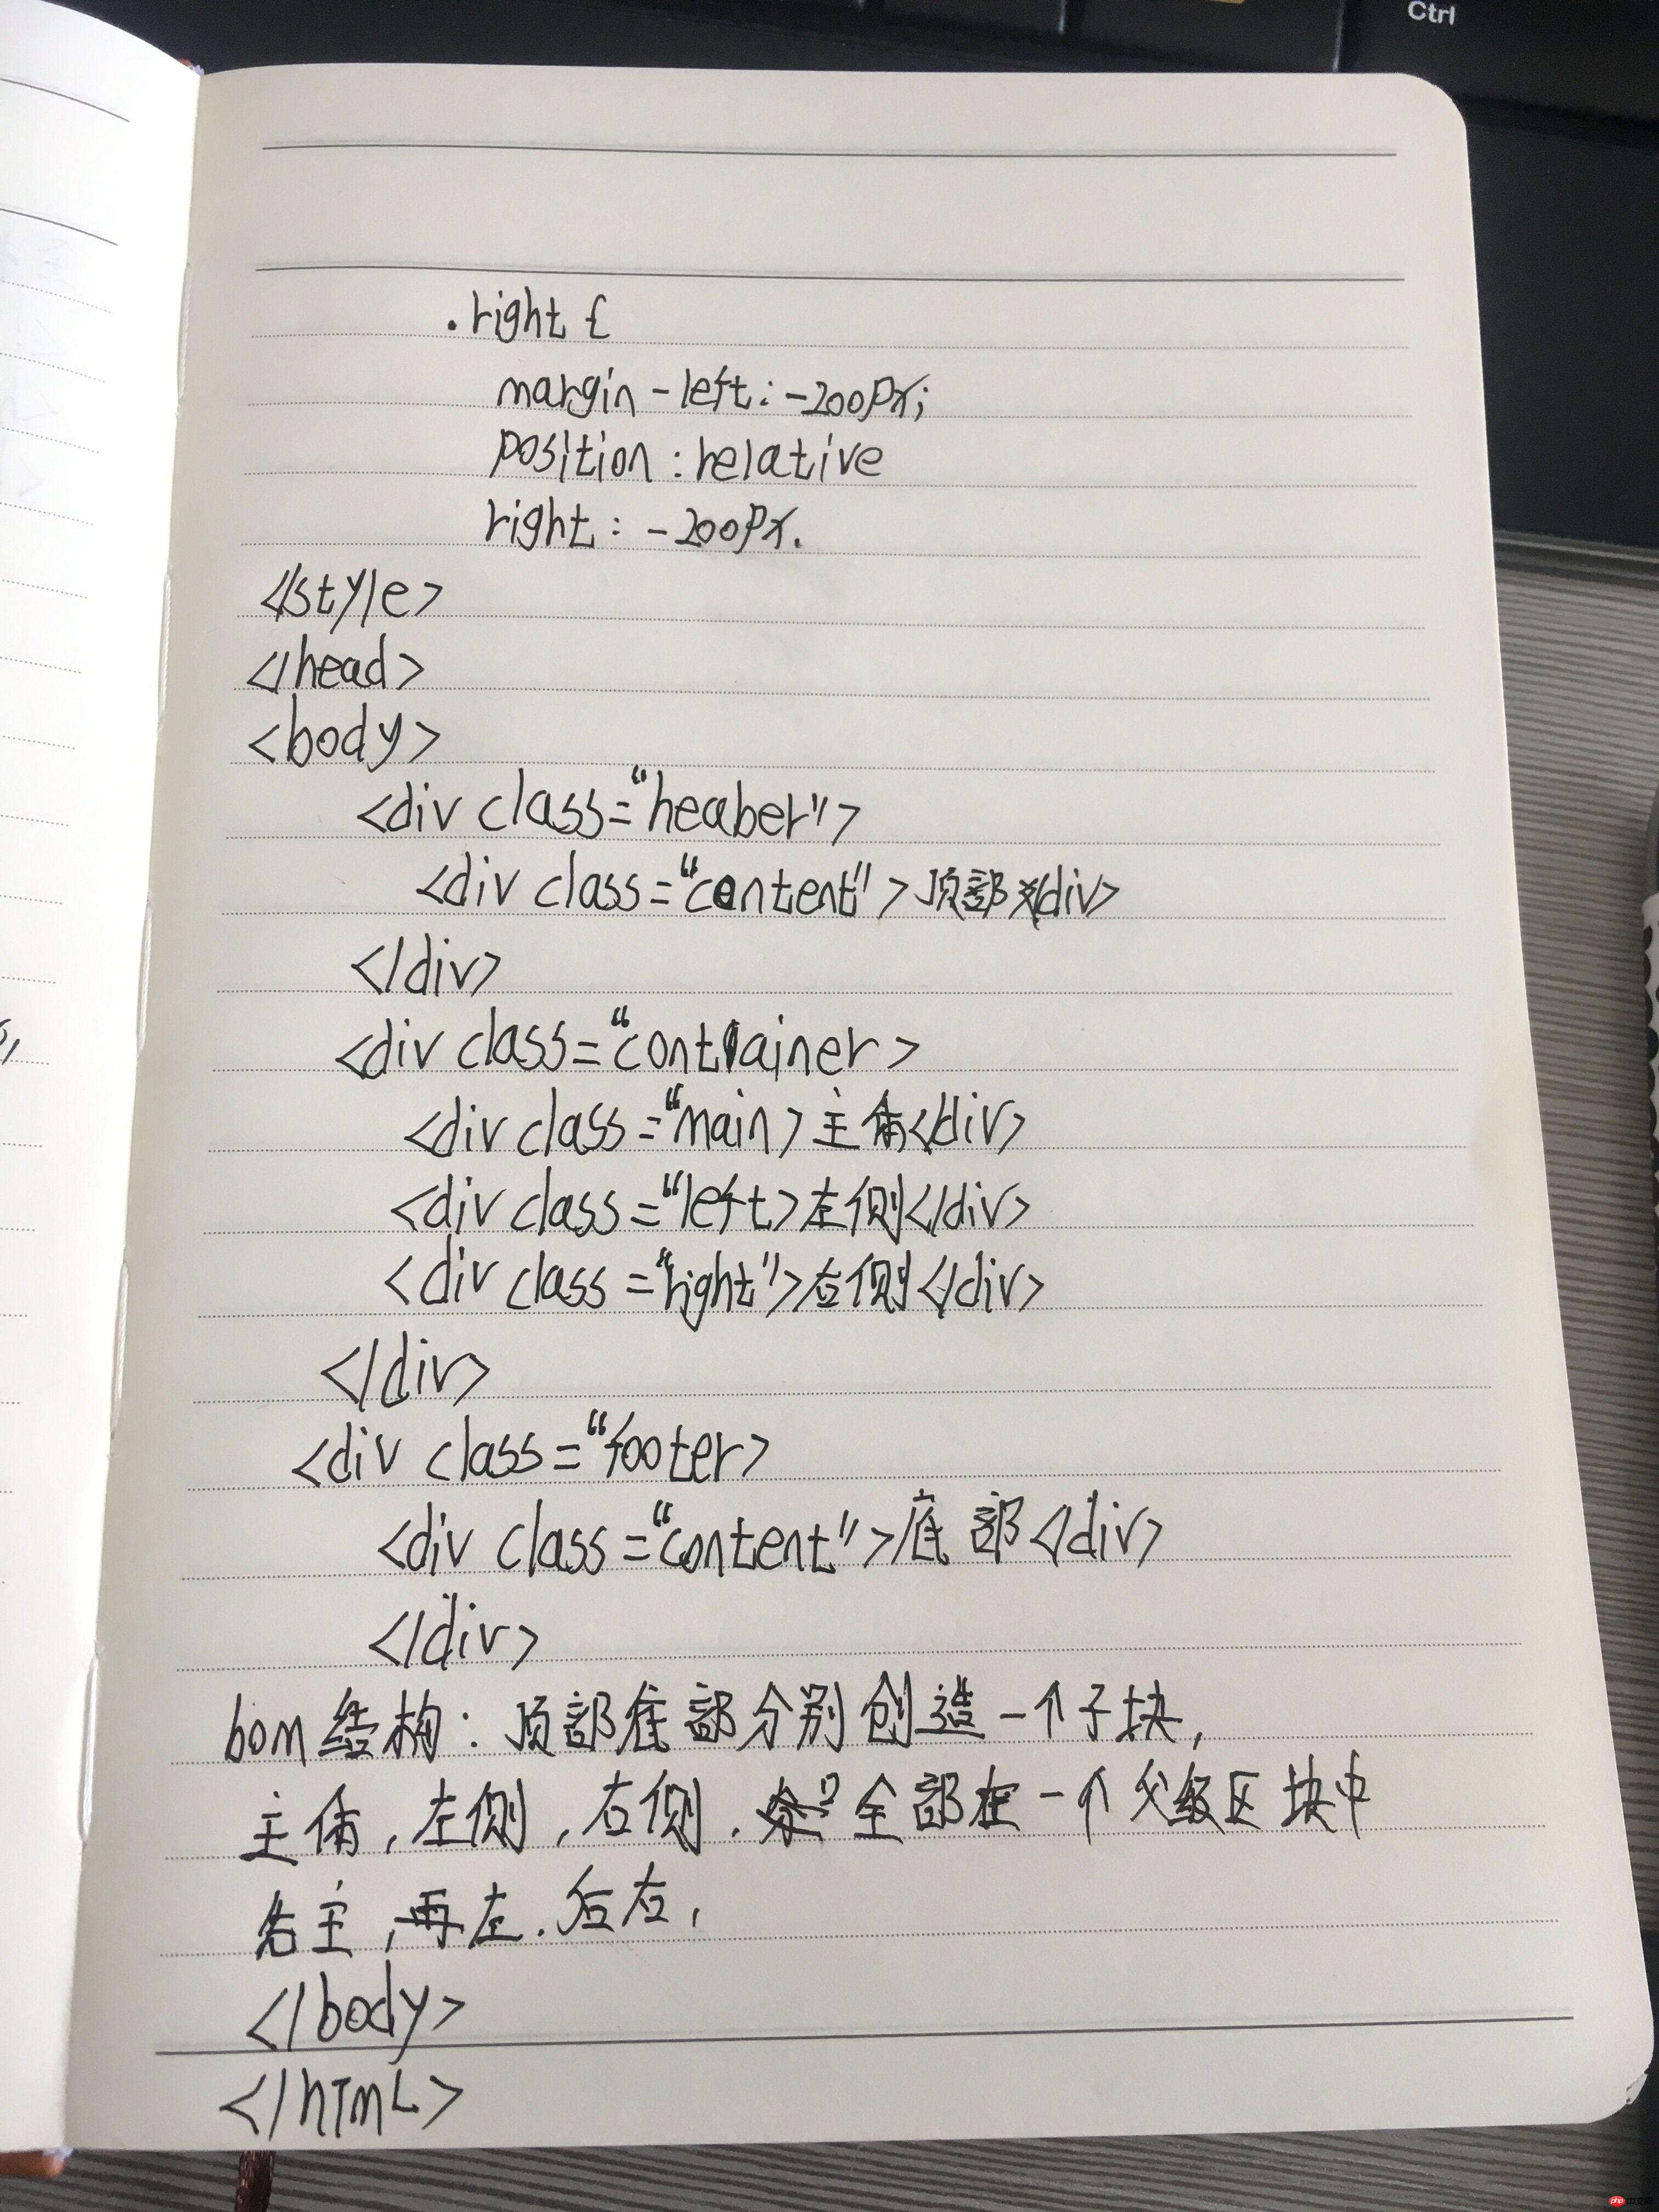 Ctrl
.right {
margin-left: -200px;
position: relative
right: -200px.
</style>
</head>
<body>
<div class="heaber">
<div class="content">顶部</div>
</div>
<div class="container>
<div class="main>主体</div>
<div class="left>左侧</div>
<div class="right">右侧</div>
</div>
<div class="footer>
<div class="content">底部</div>
</div>
bom结构:顶部底部分别创造一个子块,
主体,左侧,右侧.全部在一个父级区块中
主,再左.后右,
</body>
</hTmL>
php 中文网